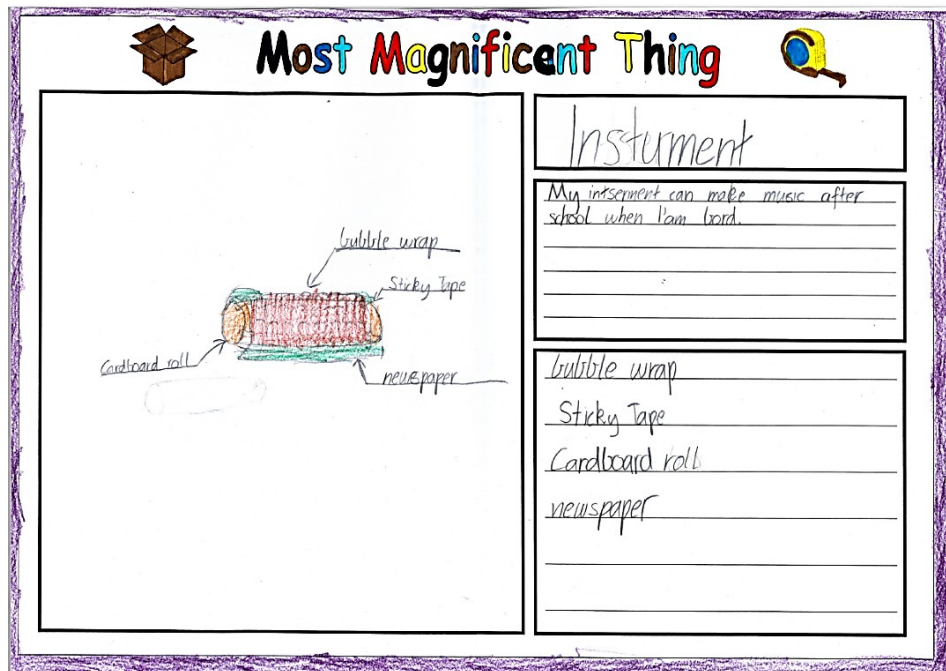 Most Magnificent Thing
bubble wrap
Sticky Tape
Cardboard roll
newspaper
Instument
My intserment can make music after
school when I'am bord.
bubble wrap
Sticky Tape
Cardboard roll
newspaper